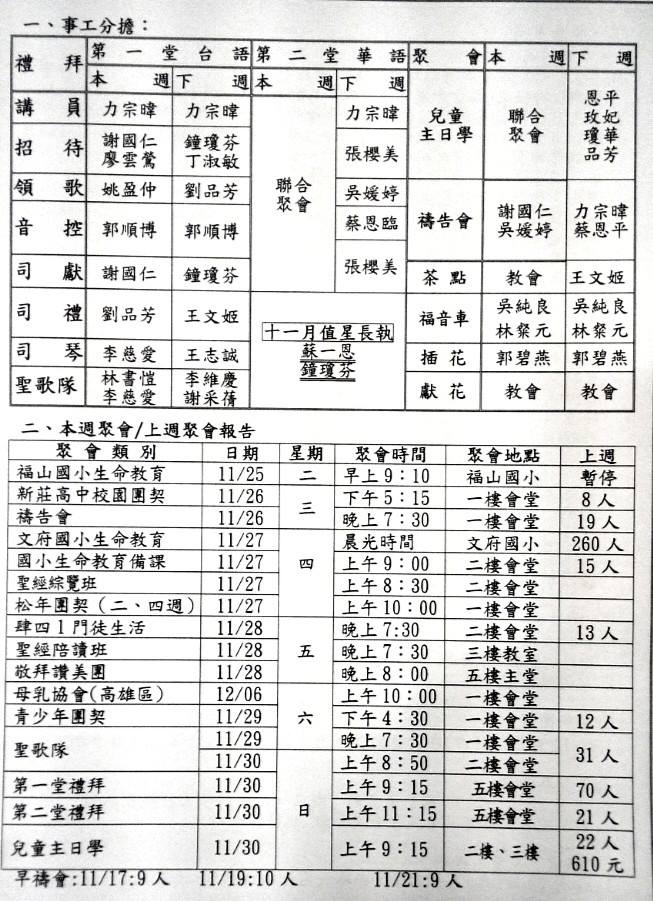 一、事工分擔：
禮拜 第一堂台語 第二堂華語 聚會 本週 下週
本週 下週 本週 下週
講員 力宗暐 力宗暐 聯合聚會 力宗暐 兒童主日學 聯合聚會 恩平 玫妃 瓊華 品芳
招待 謝國仁 廖雲鶯 鐘瓊芬 丁淑敏 張櫻美
領歌 姚盈仲 劉品芳 吳媛婷 禱告會 謝國仁 吳媛婷 力宗暐 蔡恩平
音控 郭順博 郭順博 蔡恩臨
司獻 謝國仁 鐘瓊芬 張櫻美 茶點 教會 王文姬
司禮 劉品芳 王文姬 十一月值星長執 蘇一恩 鐘瓊芬 福音車 吳純良 林粲元 吳純良 林粲元
司琴 李慈愛 王志誠 插花 郭碧燕 郭碧燕
聖歌隊 林書愷 李慈愛 李維慶 謝采蒨 獻花 教會 教會
二、本週聚會/上週聚會報告
聚會類別 日期 星期 聚會時間 聚會地點 上週
福山國小生命教育 11/25 二 早上9：10 福山國小 暫停
新莊高中校園團契 11/26 三 下午5：15 一樓會堂 8人
禱告會 11/26 晚上7：30 一樓會堂 19人
文府國小生命教育 11/27 四 晨光時間 文府國小 260人
國小生命教育備課 11/27 上午9：00 二樓會堂 15人
聖經綜覽班 11/27 上午8：30 二樓會堂
松年團契（二、四週） 11/27 上午10：00 一樓會堂
肆四1門徒生活 11/28 五 晚上7:30 二樓會堂 13人
聖經陪讀班 11/28 晚上7：30 三樓教室
敬拜讚美團 11/28 晚上8：00 五樓主堂
母乳協會(高雄區) 12/06 六 上午10：00 一樓會堂
青少年團契 11/29 下午4：30 一樓會堂 12人
聖歌隊 11/29 晚上7：30 一樓會堂 31人
11/30 日 上午8：50 二樓會堂
第一堂禮拜 11/30 上午9：15 五樓會堂 70人
第二堂禮拜 11/30 上午11：15 五樓會堂 21人
兒童主日學 11/30 上午9：15 二樓、三樓 22人 610元
早禱會:11/17:9人 11/19:10人 11/21:9人